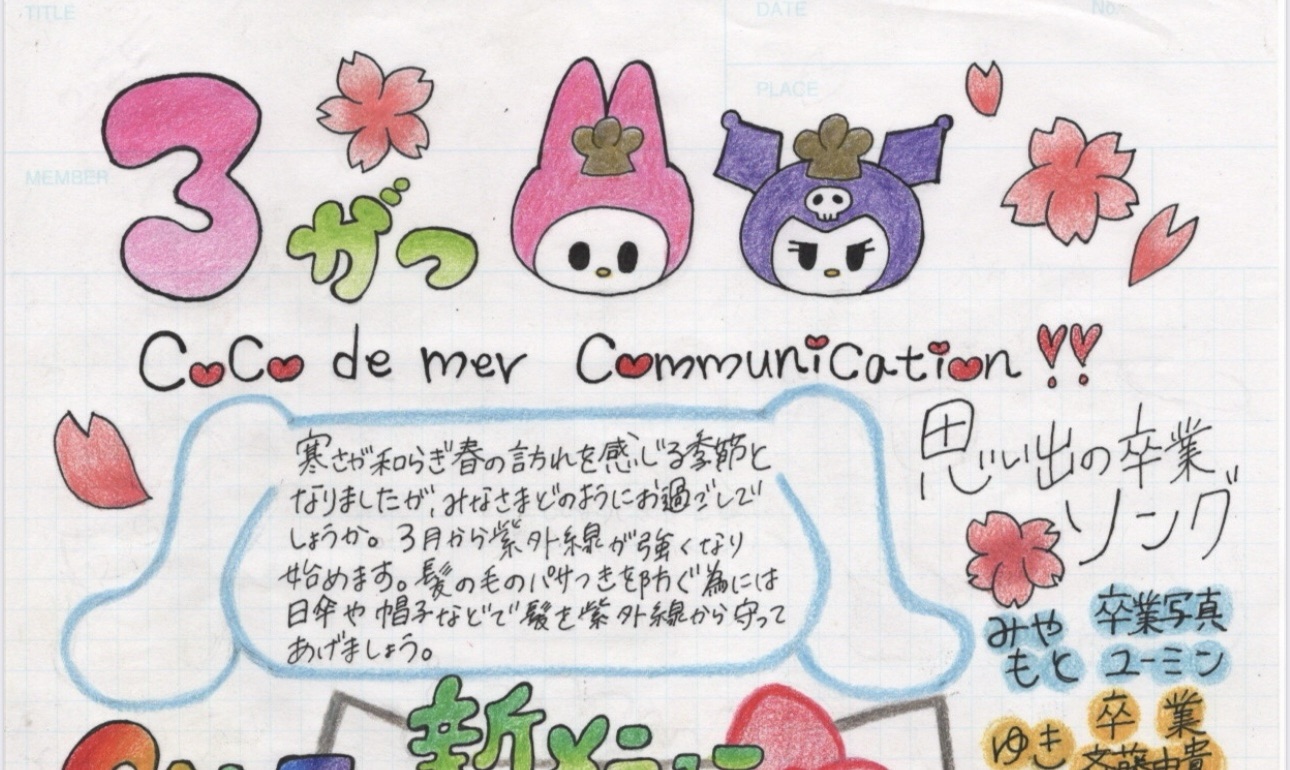 TITLE
DATE
No.
PLACE
MEMBER
3がつ
CoCo de mer Communication !!
寒さが和らぎ春の訪れを感じる季節と
なりましたが、みなさまどのようにお過ごしで
しょうか。3月から紫外線が強くなり
始めます。髪の毛のパサつきを防ぐ為には
日傘や帽子などで髪を紫外線から守って
あげましょう。
思い出の卒業
ソング
みやもと
卒業写真
ユーミン
ゆき
卒業
斉藤由貴
新メニュー